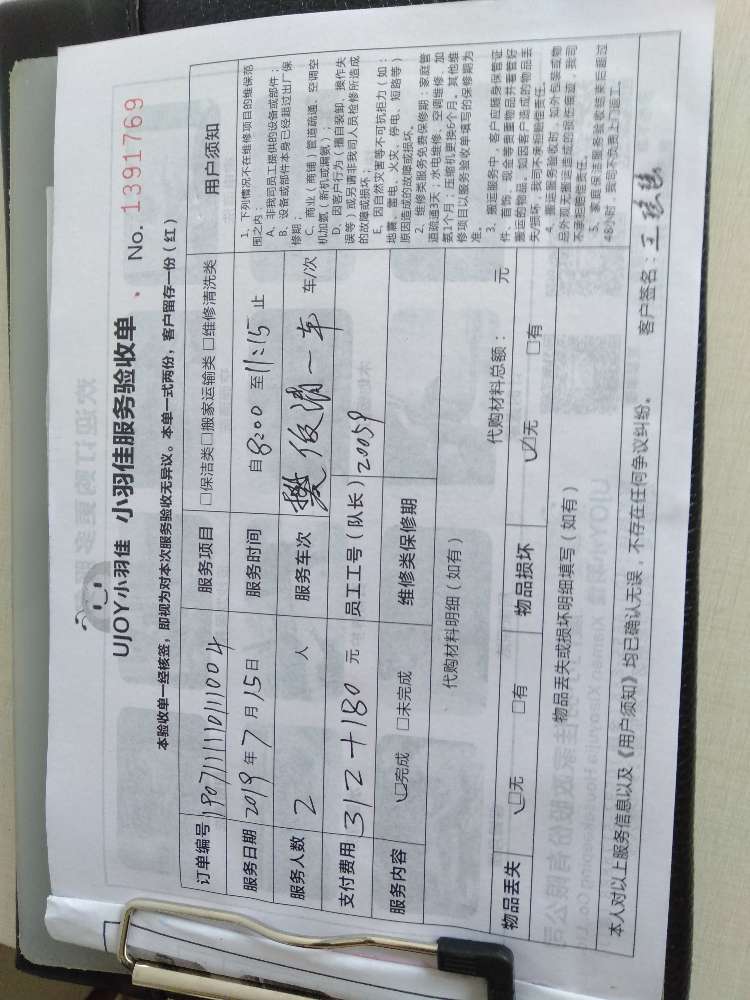 UJOY小羽佳 小羽佳服务验收单 No. 1391769
本验收单一经核签，即视为对本次服务验收无异议。本单一式两份，客户留存一份（红）
订单编号 服务项目 □保洁类□搬家运输类 □维修清洗类
服务日期 2019年7月15日 服务时间 自8:00至11:15止
服务人数 2 人 服务车次 一车 车/次
支付费用 312+180 元 员工工号（队长）20059
服务内容 ☑完成 □未完成 维修类保修期
代购材料明细（如有） 代购材料总额： 元
物品丢失 ☑无 □有 物品损坏 ☑无 □有
物品丢失或损坏明细填写（如有）
用户须知
1、下列情况不在维修项目的维保范
围之内：
A、非我司员工提供的设备或部件；
B、设备或部件本身已经超过出厂保
修期；
C、商业（商铺）管道疏通、空调空
机加氨（新机或漏氨）；
D、因客户行为（擅自装卸、操作失
误等）或另请非我司人员检修所造成
的故障或损坏；
E、因自然灾害等不可抗拒力（如：
地震、雷电、火灾、停电、短路等）
原因造成的故障或损坏。
2、维修类服务免费保修期：家庭管
道疏通3天；水电维修、空调维修、加
氨1个月；压缩机更换6个月。其他维
修项目以服务验收单填写的保修期为
准。
3、搬运服务中，客户应随身保管证
件、首饰、现金等贵重物品并看管好
搬运的物品，如因客户造成的物品丢
失/损坏，我司不承担赔偿责任。
4、搬运服务验收时，如外包装或物
品外观无搬运造成的损伤痕迹，我司
不承担赔偿责任。
5、家庭保洁服务验收结束后超过
48小时，我司不负责上门返工。
本人对以上服务信息以及《用户须知》均已确认无误，不存在任何争议纠纷。 客户签名：